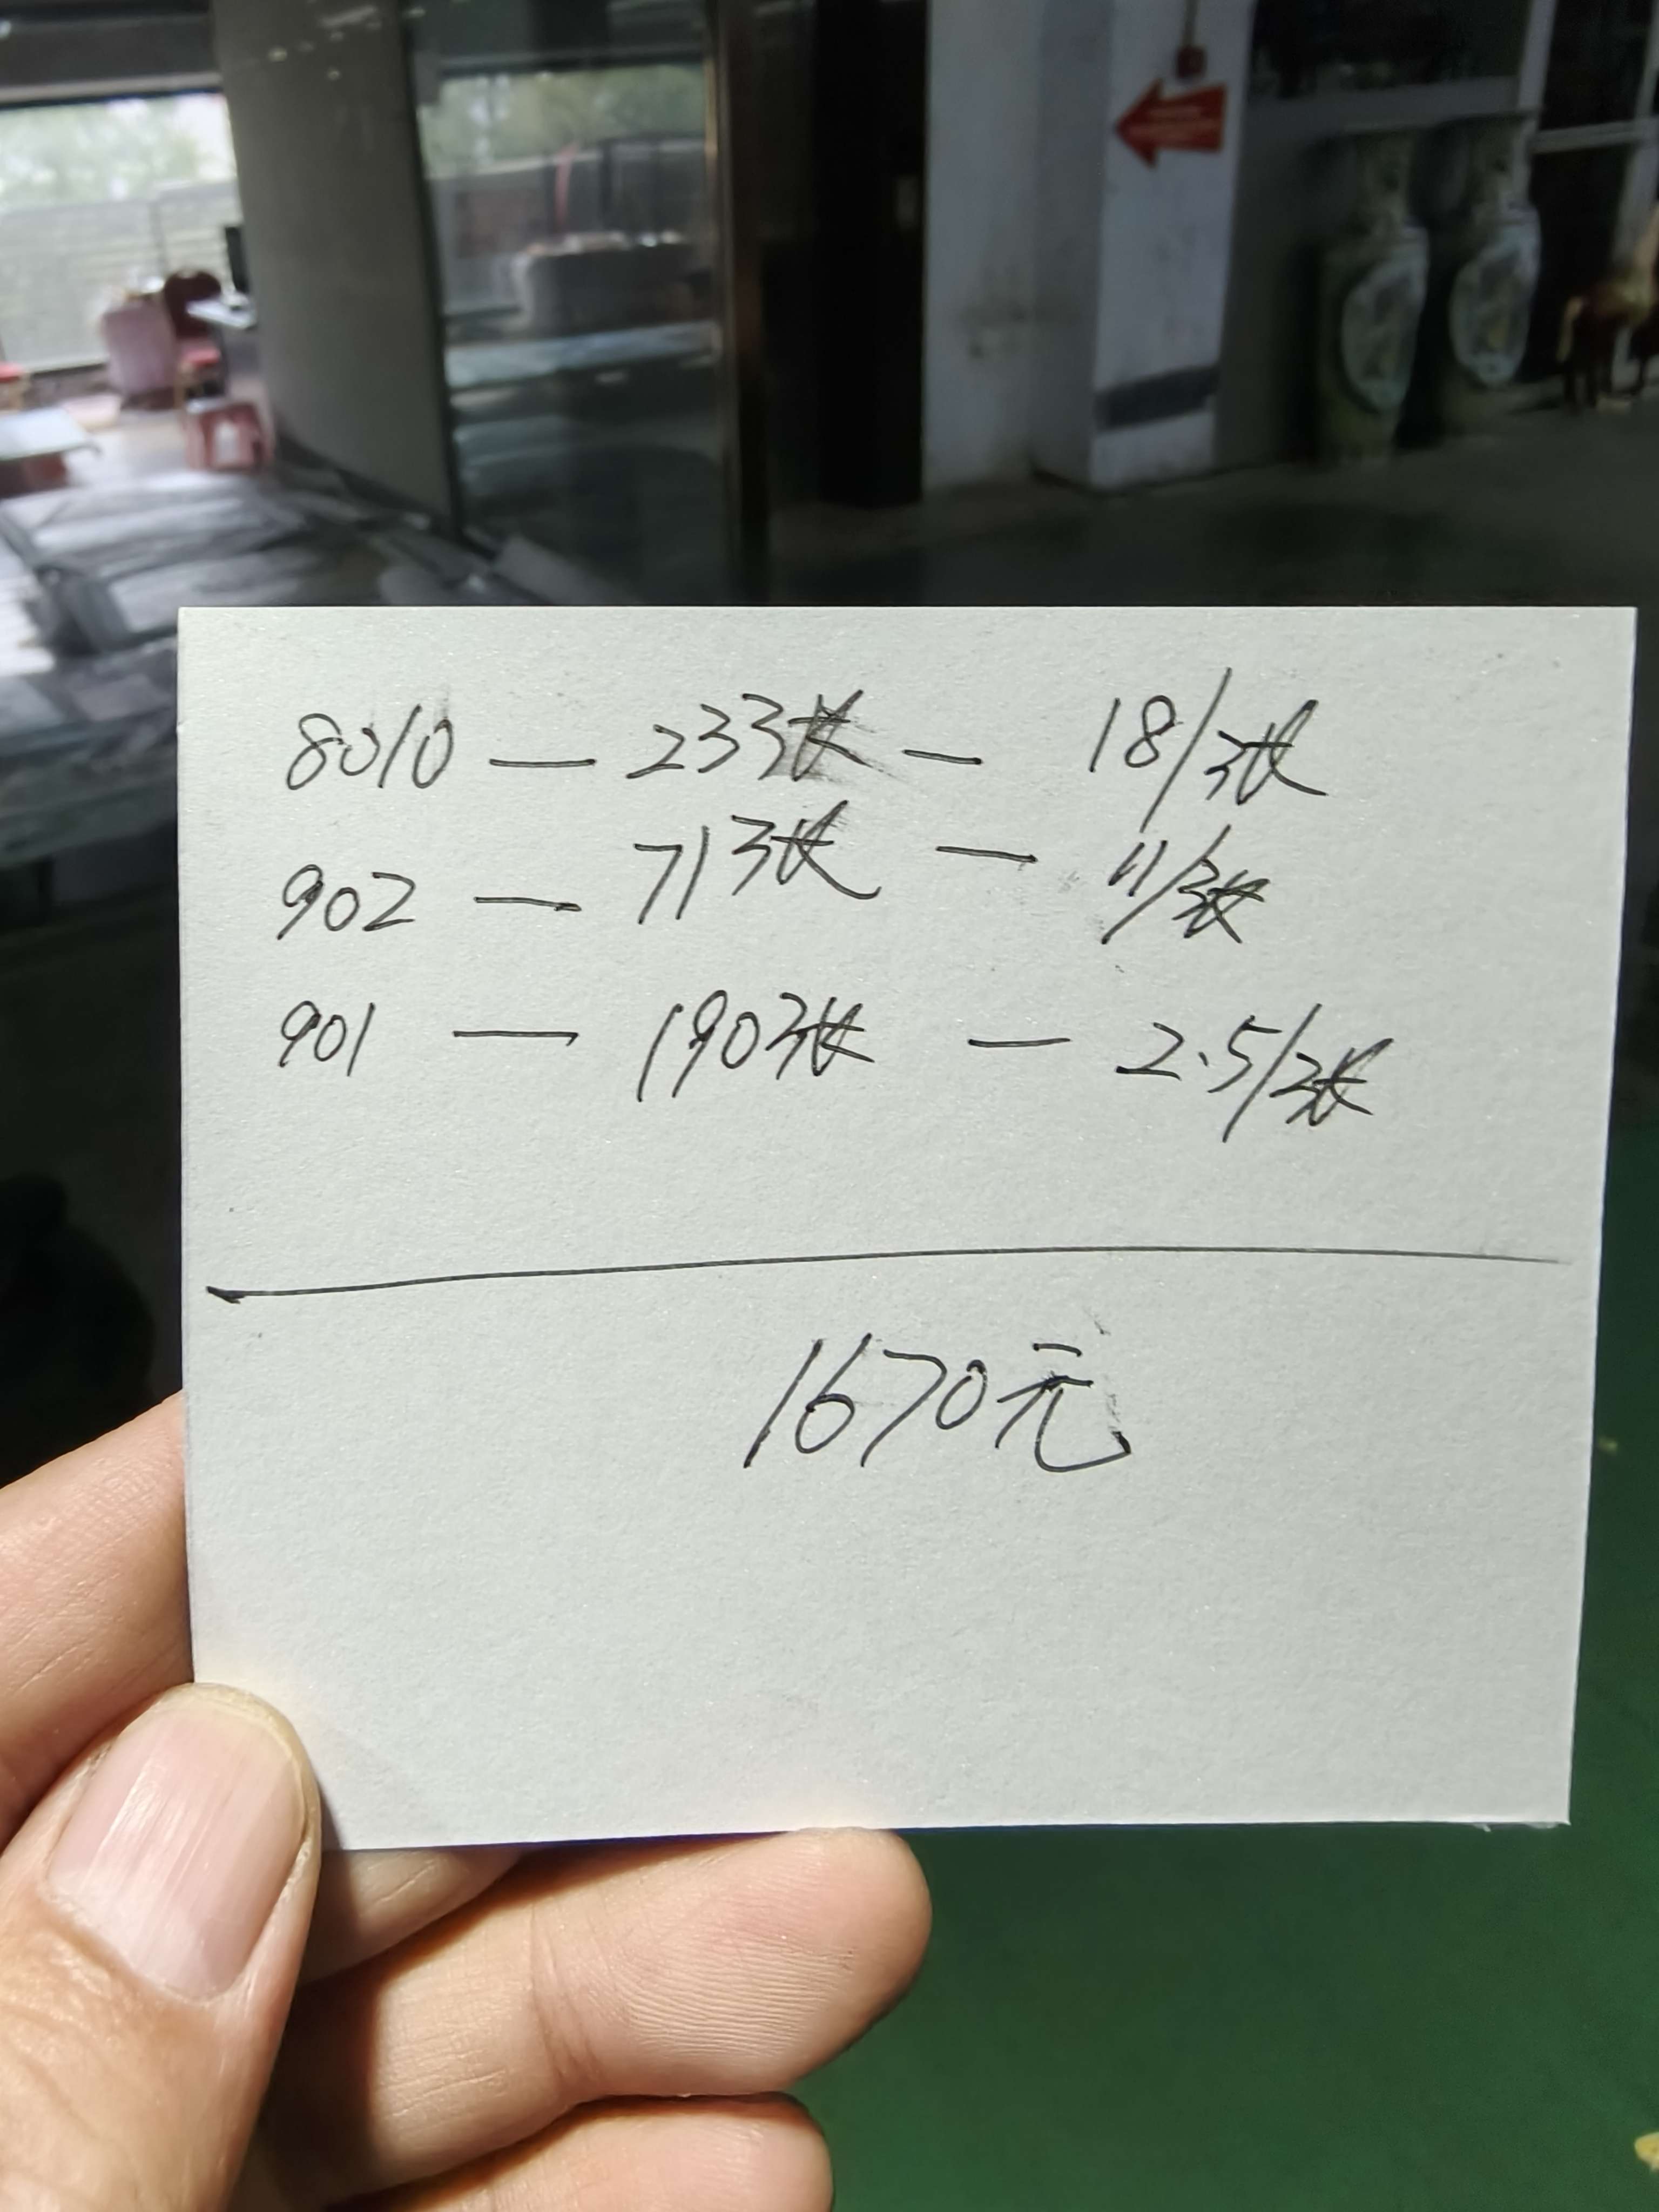 8010 — 23张 — 18/张
902 — 71张 — 11/张
901 — 190张 — 2.5/张
1670元